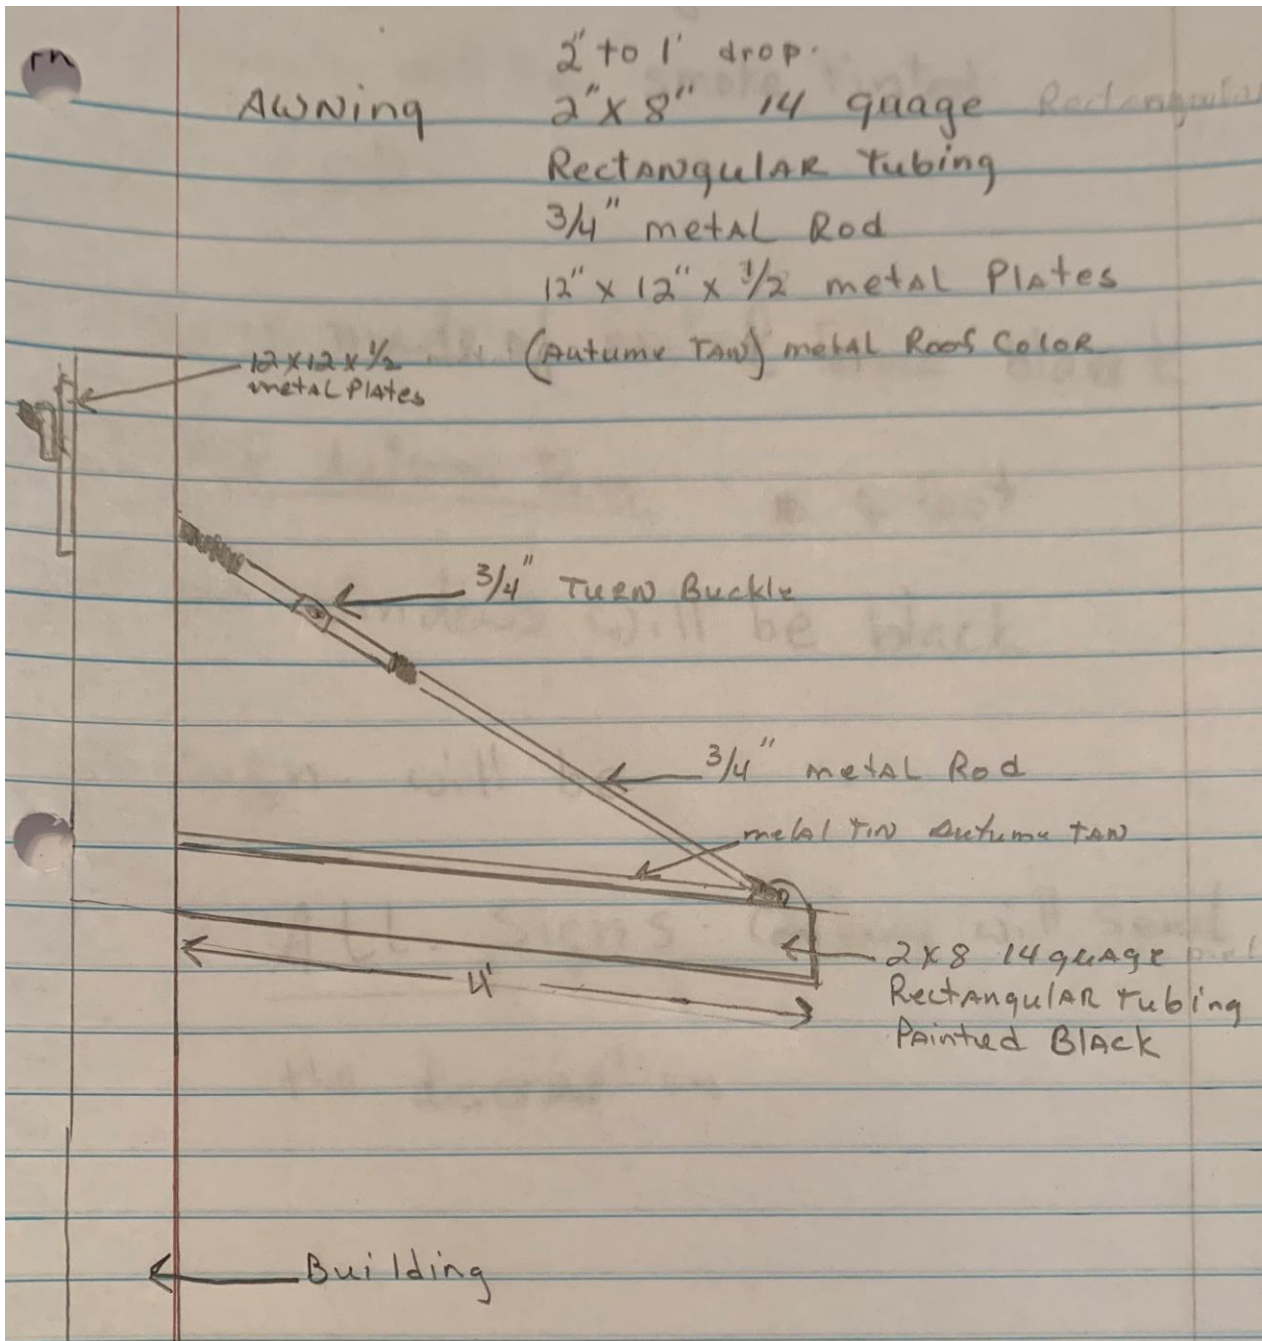 2" to 1' drop.
Awning
2" x 8" 14 quage Rectangular
Rectangular Tubing
3/4" metal Rod
12" x 12" x 1/2 metal Plates
(Autume Tan) metal Roof Color
12 x 12 x 1/2
metal Plates
3/4" Turn Buckle
3/4" metal Rod
metal Tin Autume Tan
4'
2 x 8 14 quage
Rectangular Tubing
Painted Black
Building